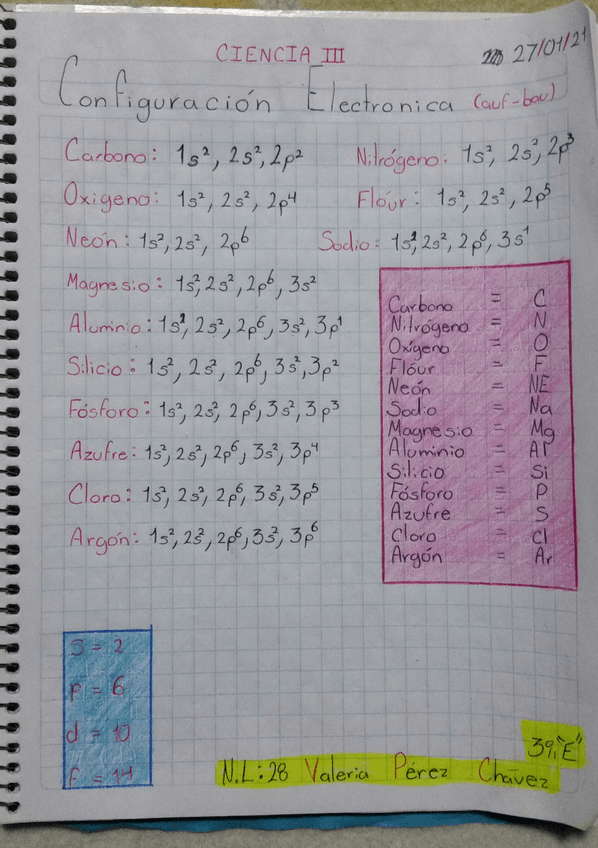 CIENCIA III
27/01/21
Configuración Electronica (auf-bau)
Carbono: 1s², 2s², 2p² Nitrógeno: 1s², 2s², 2p³
Oxigeno: 1s², 2s², 2p⁴ Flóur: 1s², 2s², 2p⁵
Neón: 1s², 2s², 2p⁶ Sodio: 1s², 2s², 2p⁶, 3s¹
Magnesio: 1s², 2s², 2p⁶, 3s²
Aluminio: 1s², 2s², 2p⁶, 3s², 3p¹
Silicio: 1s², 2s², 2p⁶, 3s², 3p²
Fósforo: 1s², 2s², 2p⁶, 3s², 3p³
Azufre: 1s², 2s², 2p⁶, 3s², 3p⁴
Cloro: 1s², 2s², 2p⁶, 3s², 3p⁵
Argón: 1s², 2s², 2p⁶, 3s², 3p⁶
Carbono = C
Nitrógeno = N
Oxígeno = O
Flóur = F
Neón = NE
Sodio = Na
Magnesio = Mg
Aluminio = Al
Silicio = Si
Fósforo = P
Azufre = S
Cloro = Cl
Argón = Ar
S = 2
p = 6
d = 10
f = 14
3º, "E"
N.L: 28 Valeria Pérez Chávez